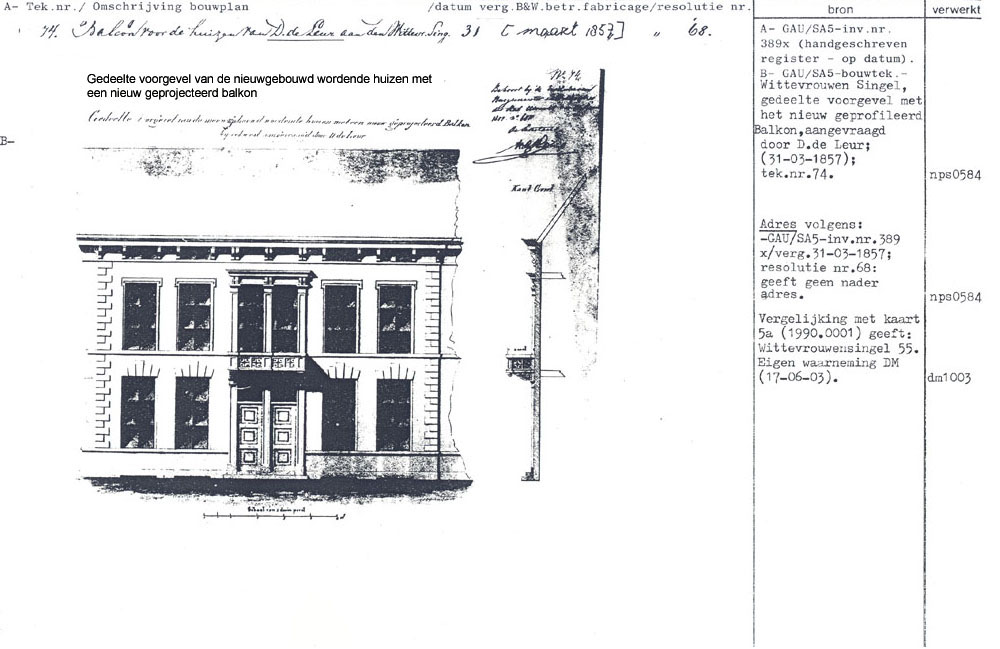 A- Tek.nr./ Omschrijving bouwplan /datum verg.B&W.betr.fabricage/resolutie nr.
bron
verwerkt
74. Balcon voor de huizen van D. de Leur aan den Wittevr. Sing. 31 [maart 1857] " 68.
Gedeelte voorgevel van de nieuwgebouwd wordende huizen met
een nieuw geprojecteerd balkon
B-
No. 74
Schaal van
A- GAU/SA5-inv.nr.
389x (handgeschreven
register - op datum).
B- GAU/SA5-bouwtek.-
Wittevrouwen Singel,
gedeelte voorgevel met
het nieuw geprofileerd
Balkon,aangevraagd
door D.de Leur;
(31-03-1857);
tek.nr.74.
nps0584
Adres volgens:
-GAU/SA5-inv.nr.389
x/verg.31-03-1857;
resolutie nr.68:
geeft geen nader
adres.
nps0584
Vergelijking met kaart
5a (1990.0001) geeft:
Wittevrouwensingel 55.
Eigen waarneming DM
(17-06-03).
dm1003